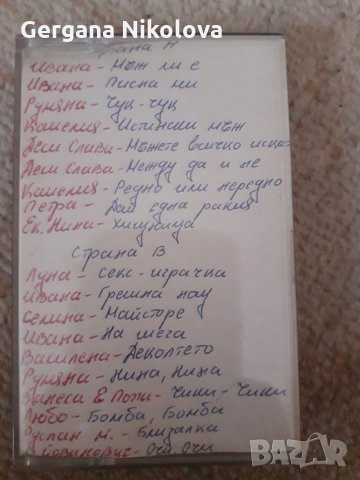 Gergana Nikolova
Страна А
Ивана - Мъж ли е
Ивана - Писна ми
Румяна - Чук-чук
Камелия - Истински мъж
Деси Слава - Мъжете всичко искат
Деси Слава - Между да и не
Камелия - Редно или нередно
Петра - Дай една ракия
Ек. Нина - Хищница
Страна В
Луна - Секс-играчка
Ивана - Грешна нощ
Селина - Майсторе
Ивана - На шега
Василена - Деколтето
Румяна - Нина, Нина
Ванеса &
- Чики - Чики
Любо - Бомба, Бомба
Руслан М. - Близалка
Йованович - Очи, Очи
BAZAR
bg